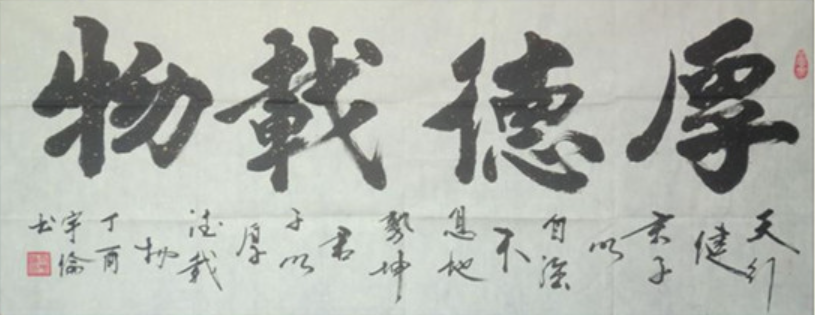 厚德載物
天行
健
君子
以
自強
不
息地
勢坤
君
子以
厚
德載
物
丁酉
宇倫
书